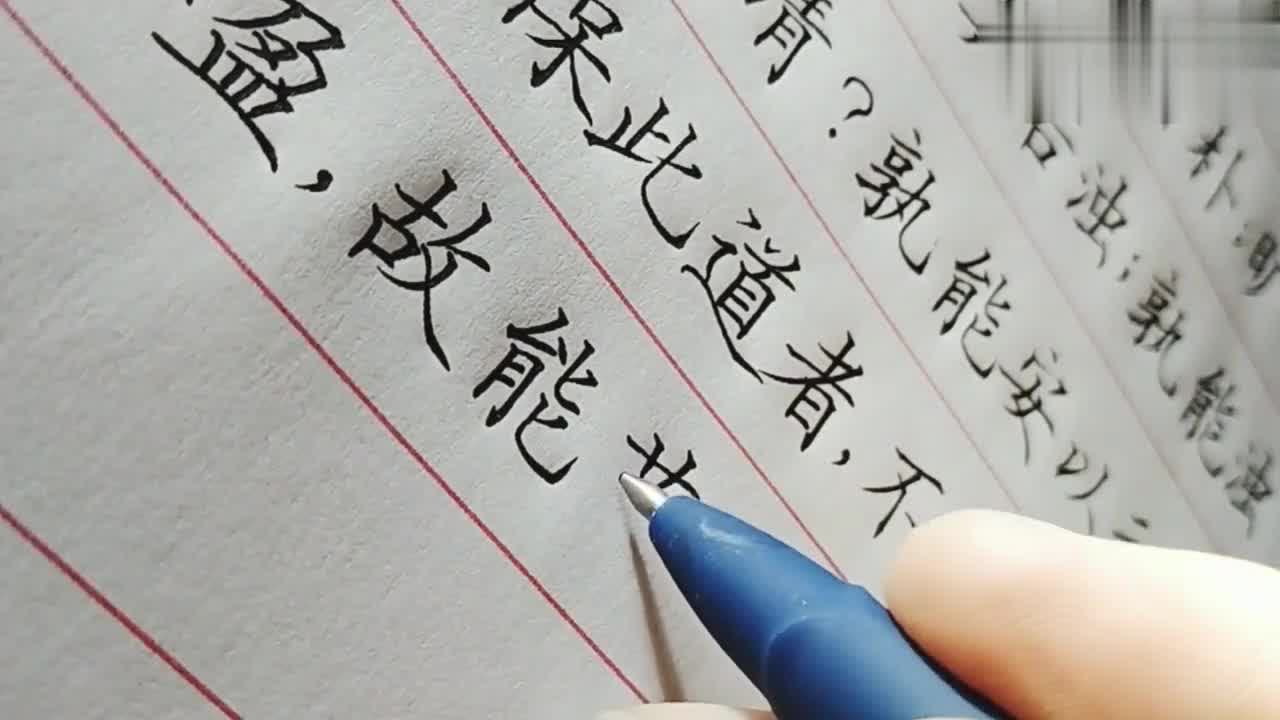 朴;旷
若浊;孰能浊
清?孰能安以
保此道者,不
盈,故能